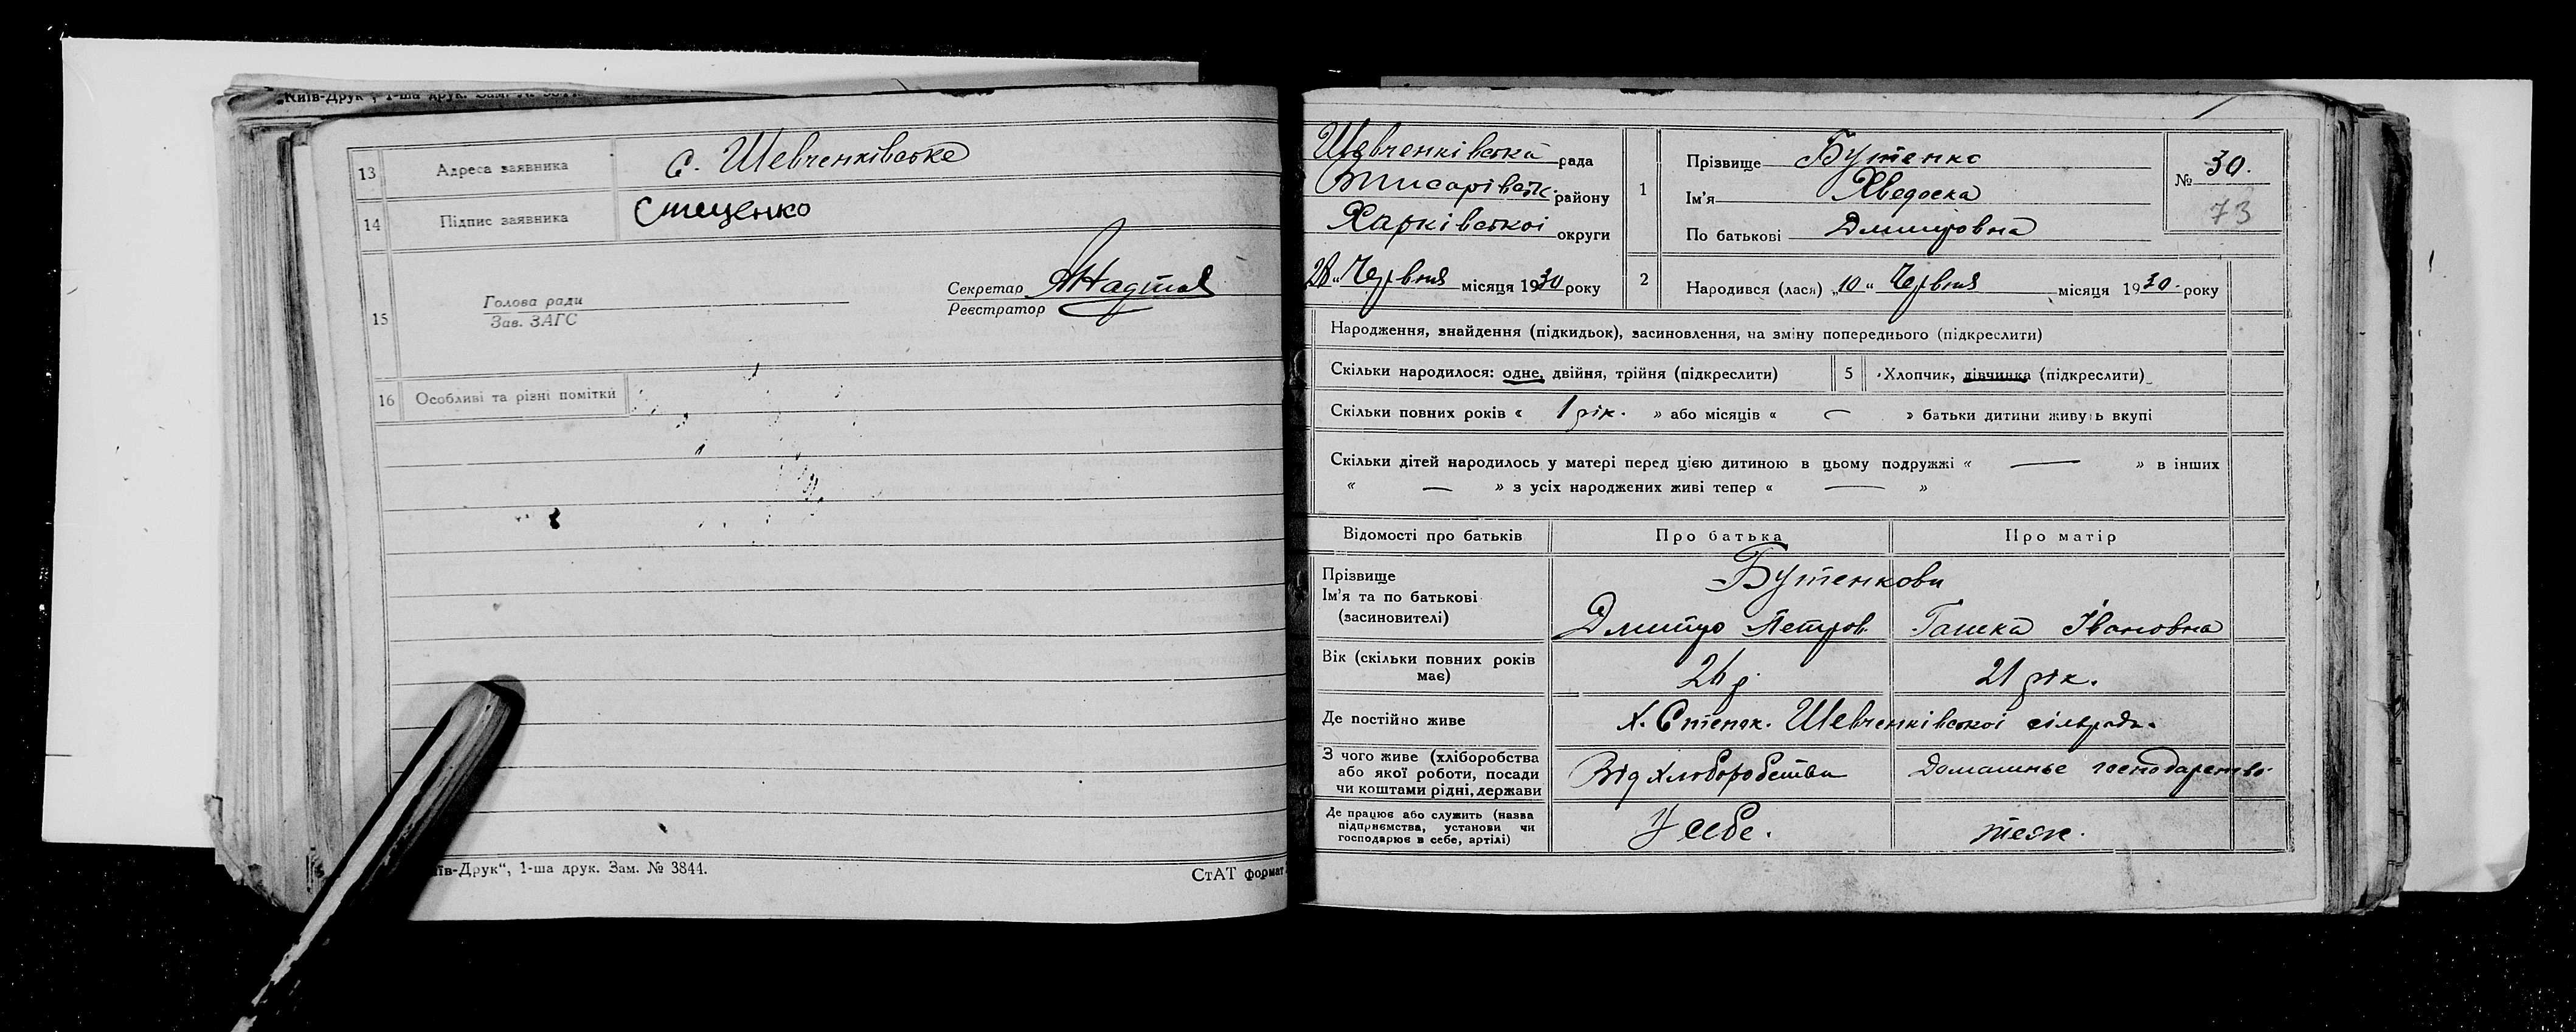 13 Адреса заявника с. Шевченківське
14 Підпис заявника Стеценко
15 Голова ради
Зав. ЗАГС
Секретар
Реєстратор
16 Особливі та різні помітки
їв-Друк“, 1-ша друк. Зам. № 3844.
СтАТ формат
Шевченківська рада
району
Харківської округи
28 „ Червня місяця 1930 року
1 Прізвище Бутенко
Ім'я Хведоска
По батькові Дмитровна
№ 30.
73
2 Народився (лася) „10“ Червня місяця 1930. року
Народження, знайдення (підкидьок), засиновлення, на зміну попереднього (підкреслити)
Скільки народилося: одне, двійня, трійня (підкреслити) 5 Хлопчик, дівчинка (підкреслити)
Скільки повних років « 1 рік. » або місяців « — » батьки дитини живуть вкупі
Скільки дітей народилось у матері перед цією дитиною в цьому подружжі « — » в інших
« — » з усіх народжених живі тепер « — »
Відомості про батьків Про батька Про матір
Прізвище
Ім'я та по батькові
(засиновителі)
Бутенкови
Дмитро Петров. Ганка Івановна
Вік (скільки повних років
має)
26 р. 21 рік.
Де постійно живе Х. Степок. Шевченківської сільради.
З чого живе (хліборобства
або якої роботи, посади
чи коштами рідні, держави
Від хлоборобства Домашнье господарство.
Де працює або служить (назва
підприємства, установи чи
господарює в себе, артілі)
У себе. теж.